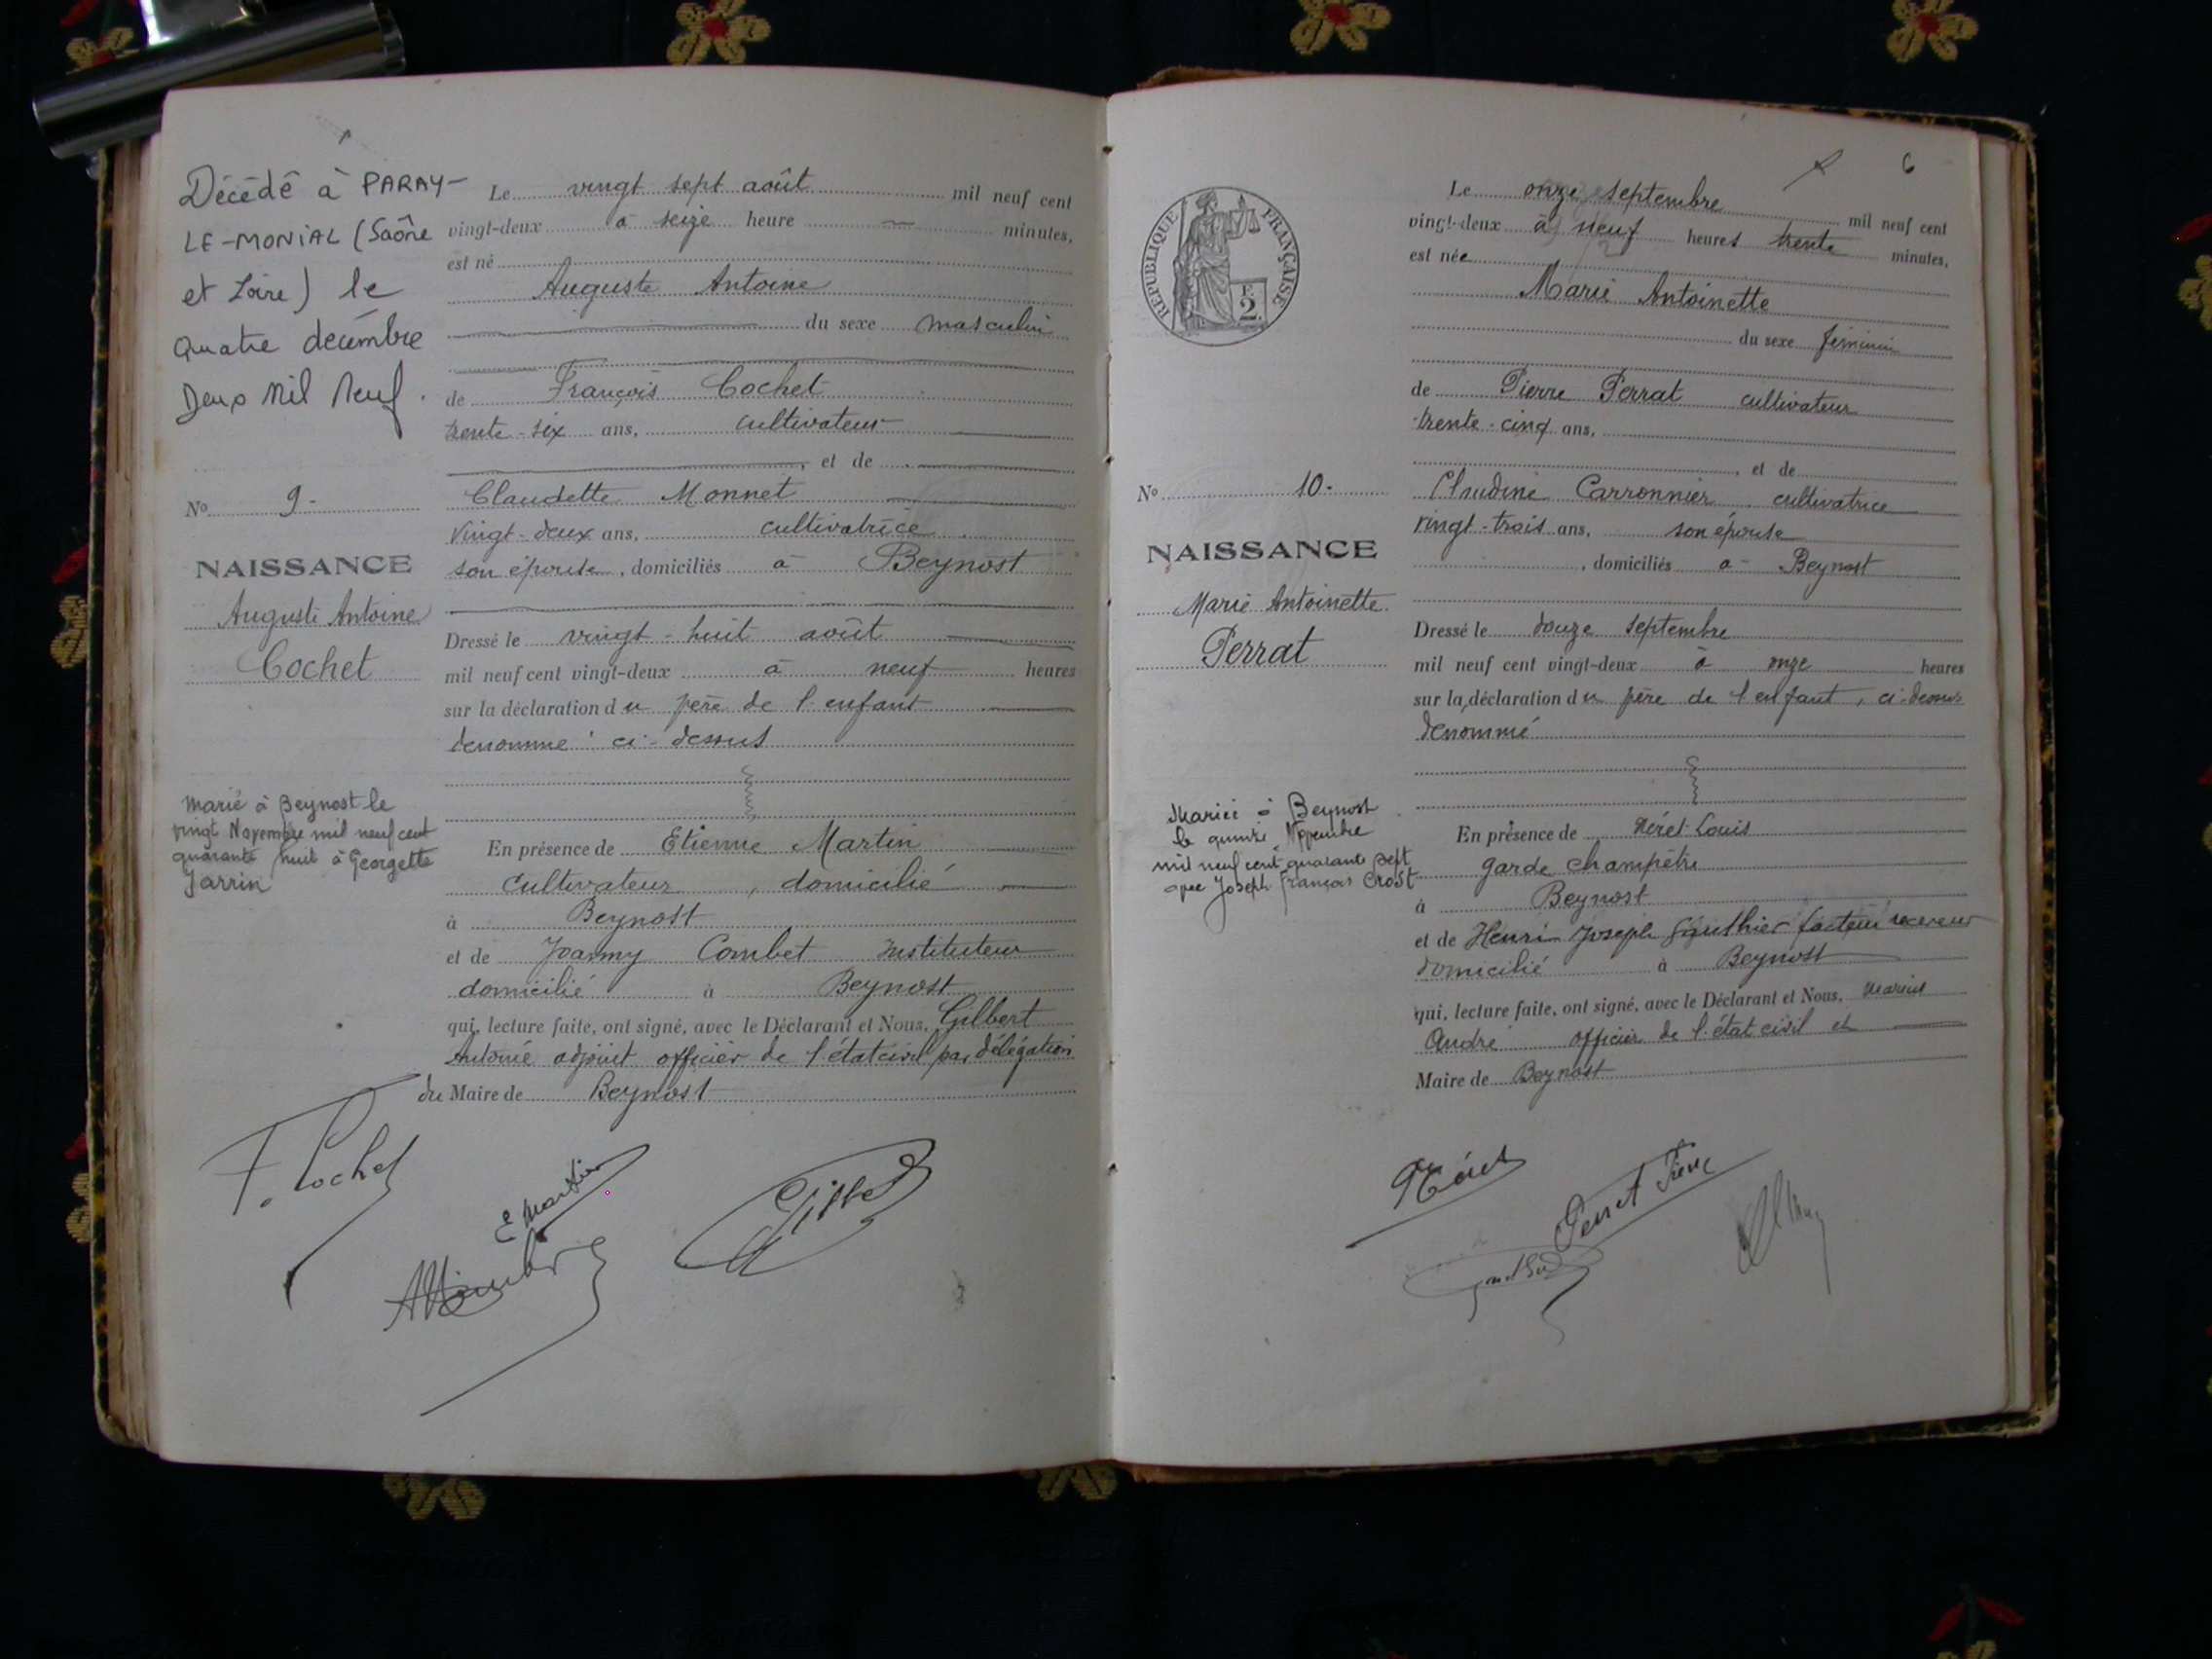 Décédé à PARAY-
LE-MONIAL (Saône
et Loire) le
quatre décembre
Deux Mil Neuf.
No 9-
NAISSANCE
Auguste Antoine
Cochet
Marié à Beynost le
vingt Novembre mil neuf cent
quarante huit à Georgette
Jarrin
Le vingt sept août mil neuf cent
vingt-deux à seize heure minutes,
est né
Auguste Antoine
du sexe masculin
de François Cochet
trente-six ans, cultivateur
, et de
Claudette Monnet
vingt-deux ans, cultivatrice
son épouse, domiciliés à Beynost
Dressé le vingt-huit août
mil neuf cent vingt-deux à neuf heures
sur la déclaration du père de l'enfant
dénommé ci-dessus
En présence de Etienne Martin
cultivateur, domicilié
à Beynost
et de Joanny Combet Instituteur
domicilié à Beynost
qui, lecture faite, ont signé, avec le Déclarant et Nous, Gilbert
Antoine adjoint officier de l'état civil par délégation
du Maire de Beynost
F. Cochet
E Martin
Gilbert
6
REPUBLIQUE FRANÇAISE
2
No 10-
NAISSANCE
Marie Antoinette
Perrat
Mariée à Beynost
le quinze Novembre
mil neuf cent quarante sept
avec Joseph François Crost
Le onze septembre mil neuf cent
vingt-deux à neuf heures trente minutes,
est née
Marie Antoinette
du sexe féminin
de Pierre Perrat cultivateur
trente-cinq ans,
, et de
Claudine Carronnier cultivatrice
vingt-trois ans, son épouse
, domiciliés à Beynost
Dressé le douze septembre
mil neuf cent vingt-deux à onze heures
sur la déclaration du père de l'enfant, ci-dessus
dénommé
En présence de Néret Louis
garde champêtre
à Beynost
et de Henri Joseph Gauthier facteur receveur
domicilié à Beynost
qui, lecture faite, ont signé, avec le Déclarant et Nous, Marius
André officier de l'état civil et
Maire de Beynost
Néret
Perrat Pierre